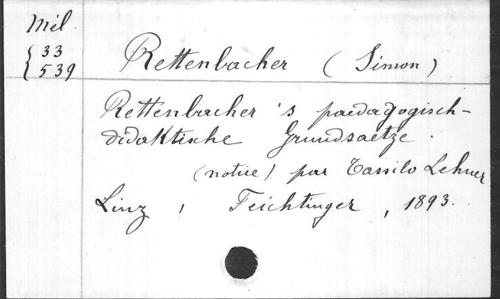 Mél.
33
539
Rettenbacher (Simon)
Rettenbacher's paedagogisch-
didaktische Grundsaetze.
(notice) par Tassilo Lehner
Linz, Feichtinger, 1893.